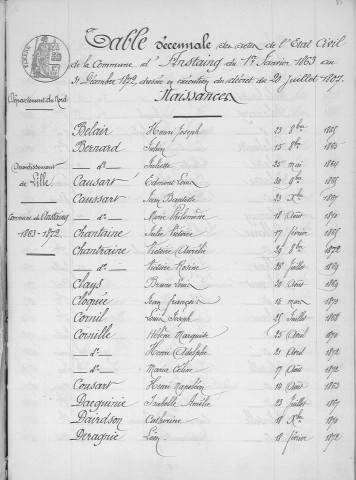 Table décennale des actes de l'Etat Civil
de la Commune d'Anstaing du 1er Janvier 1863 au
31 Décembre 1872, dressée en exécution du décret du 20 Juillet 1807.
Département du Nord
Naissances
Arrondissement
de Lille
Commune d'Anstaing
1863-1872
Belair Henri Joseph 23 8bre 1865
Bernard Julien 15 8bre 1865
d° Juliette 25 mai
Causart Edmond Louis 20 9bre
Caussart Jean Baptiste 23 Xbre
d° Marie Philomène 18 Août 1870
Chantaine Julie Victoire 17 février 1865
Chantraine Victoire Aurélie 24 8bre 1872
d° Victoire Rosine 25 Juillet
Clays Bruno Louis 20 Août
Cloquie Jean François 16 mars 1870
Cornil Louis Joseph 25 Juillet 1868
Cornille Hélène Marguerite 25 Avril 1870
d° Henri Adolphe 21 Avril 1872
d° Maria Céline 17 Août 1872
Cousart Henri Napoléon 10 Août 1863
Dacquinie Isabelle Amélie 23 Juillet
Davidson Catherine 18 Xbre
Deragnie Léon 18 février 1872